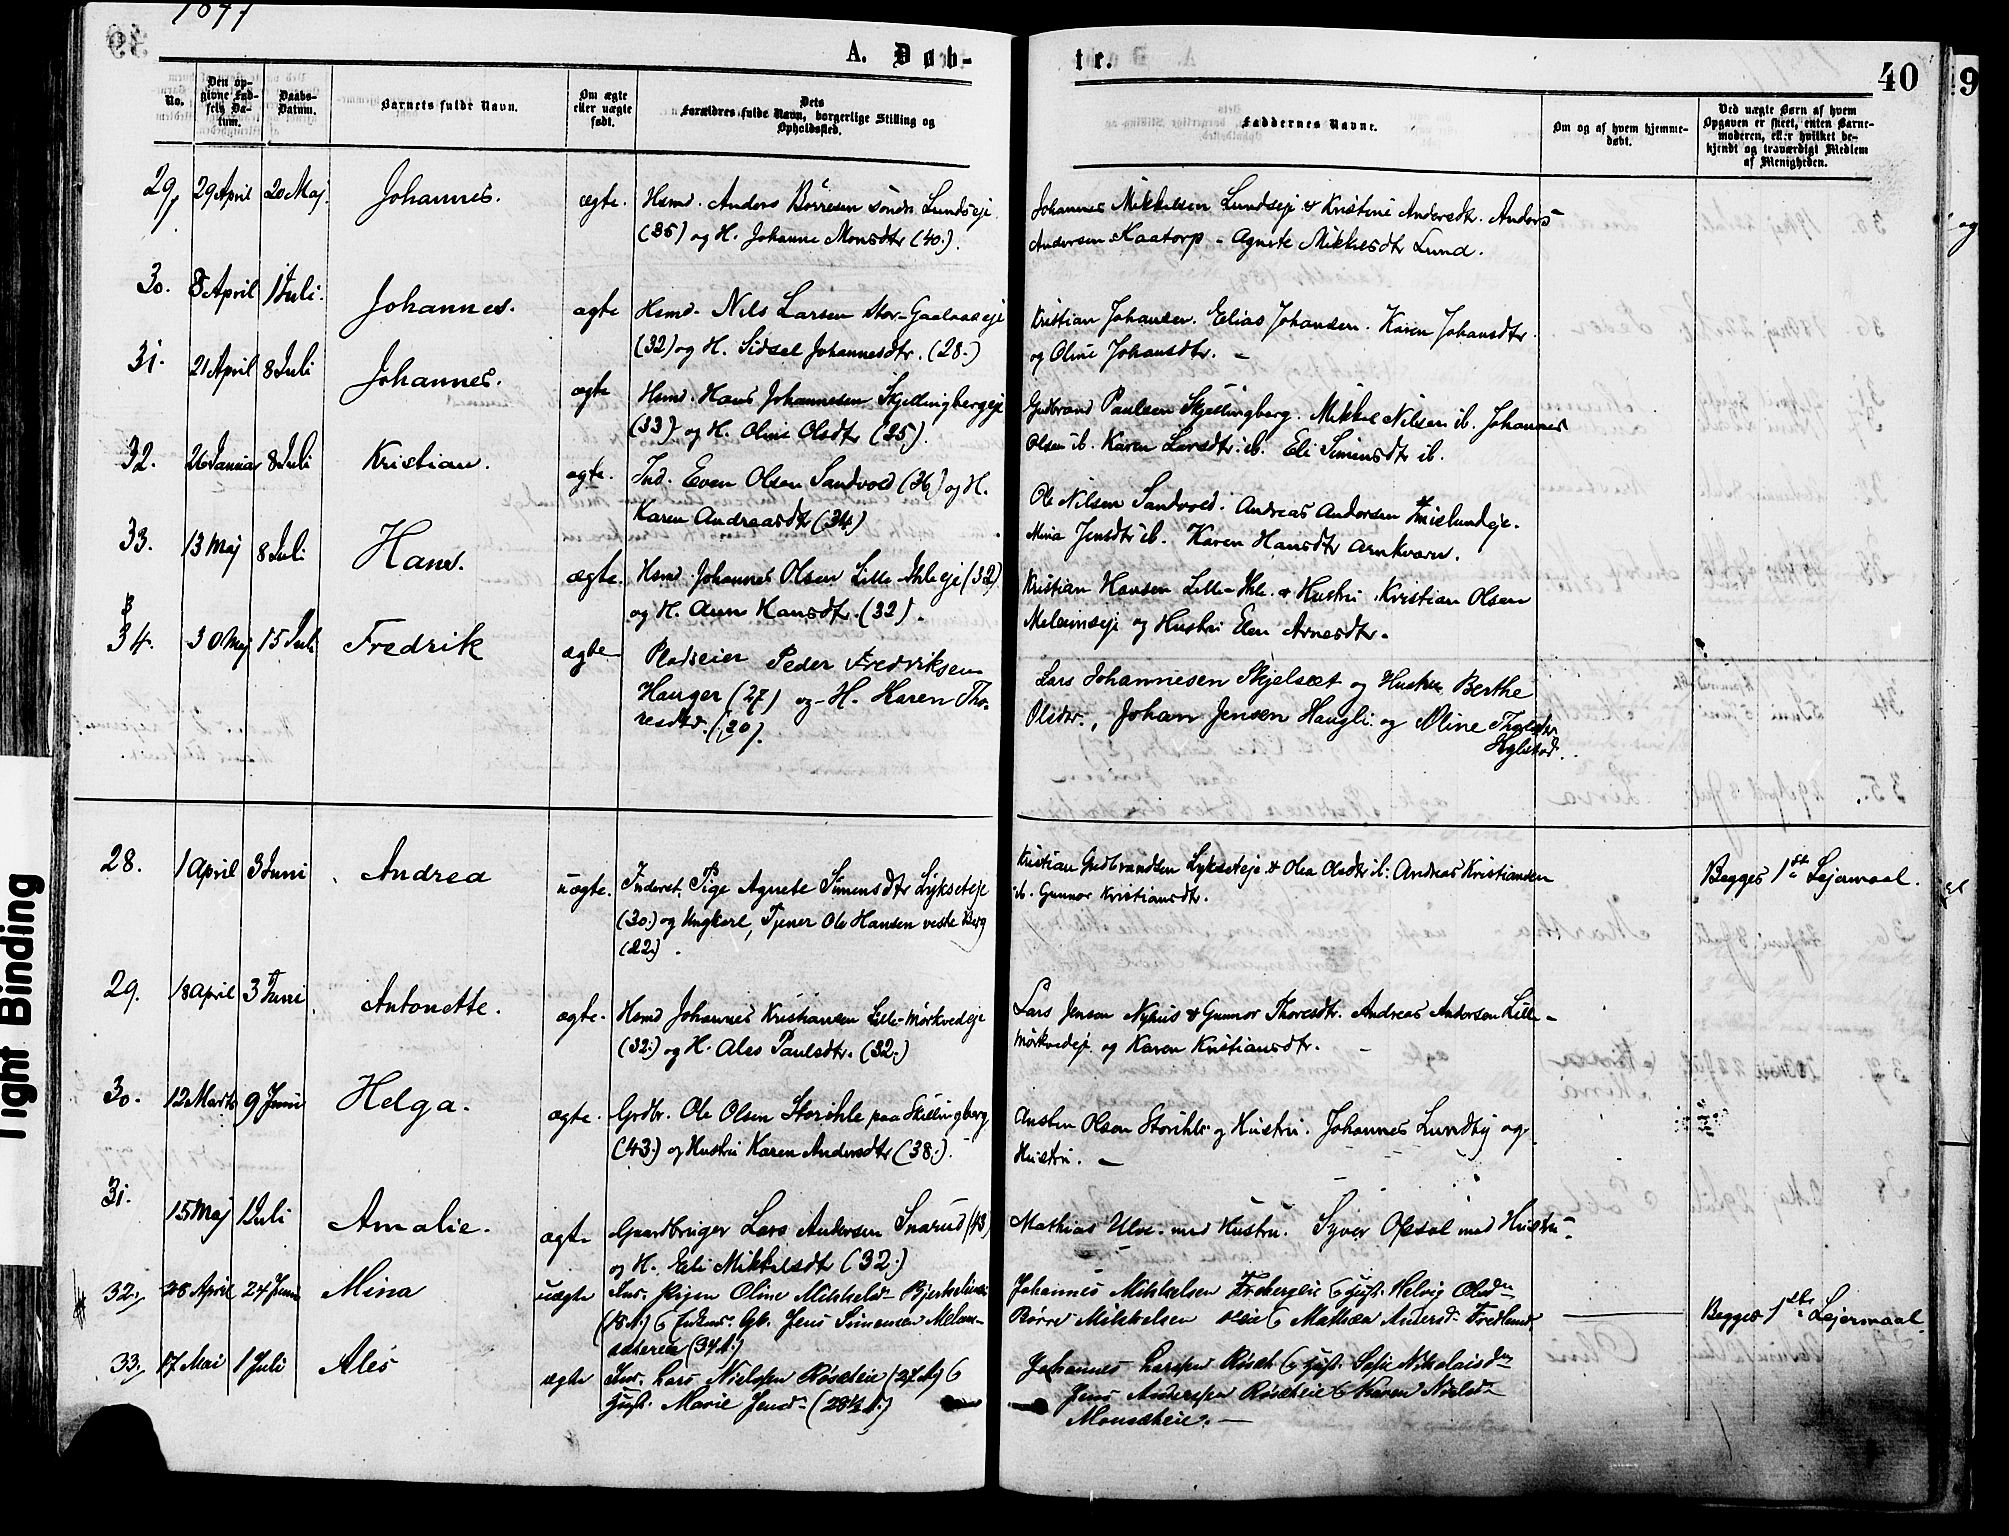 A. Døb-
tr.
40
No.
Den op-
givne Fød-
sels Da-
tum.
Daabs-
Datum.
Barnets fulde Navn.
Om ægte
eller uægte
født.
Dets
Forældres fulde Navn, borgerlige Stilling og
Opholdssted.
Faddernes Navne.
Om og af hvem hjemme-
døbt.
Ved uægte Børn af hvem
Opgaven er skeet, enten Barne-
moderen, eller hvilket be-
kjendt og troværdigt Medlem
af Menigheden.
29. 29 April 20 Maj. Johannes. ægte. Hsmd. Anders Börresen söndr. Lundseje
(35) og H. Johanne Monsdtr (40.).
Johannes Mikkelsen Lundseje & Kristine Andersdtr. Anders
Andersen Kaatorp - Agnete Mikkelsdtr Lund.
30. 8 April 1 Juli. Johannes. ægte Hsmd. Nils Larsen Stor-Gaalaaseje
(32) og H. Sidsel Johannesdtr. (28.)
Kristian Johansen. Elias Johansen. Karen Johansdtr
og Oline Johansdtr. -
31. 21 April 8 Juli Johannes. ægte Hsmd. Hans Johannesen Skjellingbergeje
(33) og H. Oline Olsdtr (25).
Gudbrand Paulsen Skjellingberg. Mikkel Nilsen ib. Johannes
Olsen ib. Karen Larsdtr. ib. Eli Simensdtr ib.
32. 26 Januar 8 Juli Kristian. ægte. Ind. Even Olsen Sandvold (36) og H.
Karen Andreasdtr (34)
Ole Nilsen Sandvold. Andreas Andersen
Mina Jensdtr ib. Karen Hansdtr Arnkværn.
33. 13 Maj 8 Juli Hans. ægte. Hsmd. Johannes Olsen Lille-Ihleeje (32)
og H. Ann Hansdtr. (32).
Kristian Hansen Lille-Ihle. & Hustru. Kristian Olsen
og Hustru Elen Arnesdtr.
34. 30 Maj 15 Juli Fredrik ægte Pladseier Peder Fredriksen
Hauger (27) og H. Karen Tho-
resdtr. (20).
Lars Johannesen Skjelset og Hustru Berthe
Olsdtr., Johan Jensen Haugli og Oline
28. 1 April 3 Juni Andrea uægte. Inderst. Pige Agnete Simensdtr Lykseteje
(30.) og Ungkarl, Tjener Ole Hansen vestre Berg
(22.).
Kristian Gudbrandsen Lykseteje & Olea Olsdtr ib. Andreas Kristiansen
ib. Gunnor Kristiansdtr.
Begges 1ste Lejermaal.
29. 18 April 3 Juni Antonette. ægte. Hsmd Johannes Kristiansen Lille-Mörkvedeje
(32.) og H. Ales Paulsdtr. (32.)
Lars Jensen Nyhus & Gunnor Thoresdtr. Andreas Andersen Lille-
mörkvedeje og Karen Kristiansdtr. -
30. 12 Marts 9 Juni Helga. ægte. Grdbr. Ole Olsen Storihle paa Skillingberg
(43.) og Hustru Karen Andersdtr (38.).
Austen Olsen Storihle og Hustru. Johannes Lundby og
Hustru. -
31. 15 Maj 1 Juli Amalie. ægte Gaardbruger Lars Andersen Snarud (43)
og H. Eli Mikkelsdtr (32.)
Mathias Ulve. med Hustru. Syver Opsal med Hustru -
32. 28 April 24 Juni Mina uægte Ins. Pigen Oline Mikkelsd.
Jens Simensen
(34 A.)
Johannes Mikkelsen Helvig Olsd.
Börre Mikkelsen
Begges 1ste Lejermaal
33. 17 Mai 1 Juli Ales ægte Ins. Lars Nielssen Röseteie (27 A)
Hust. Marie Jensd. (28½ A.)
Johannes Larssen Röset Hust. Sofie Nikolaisd.
Jens Anderssen Röseteie Karen Nielsd.
Monseteie. -
Tight Binding